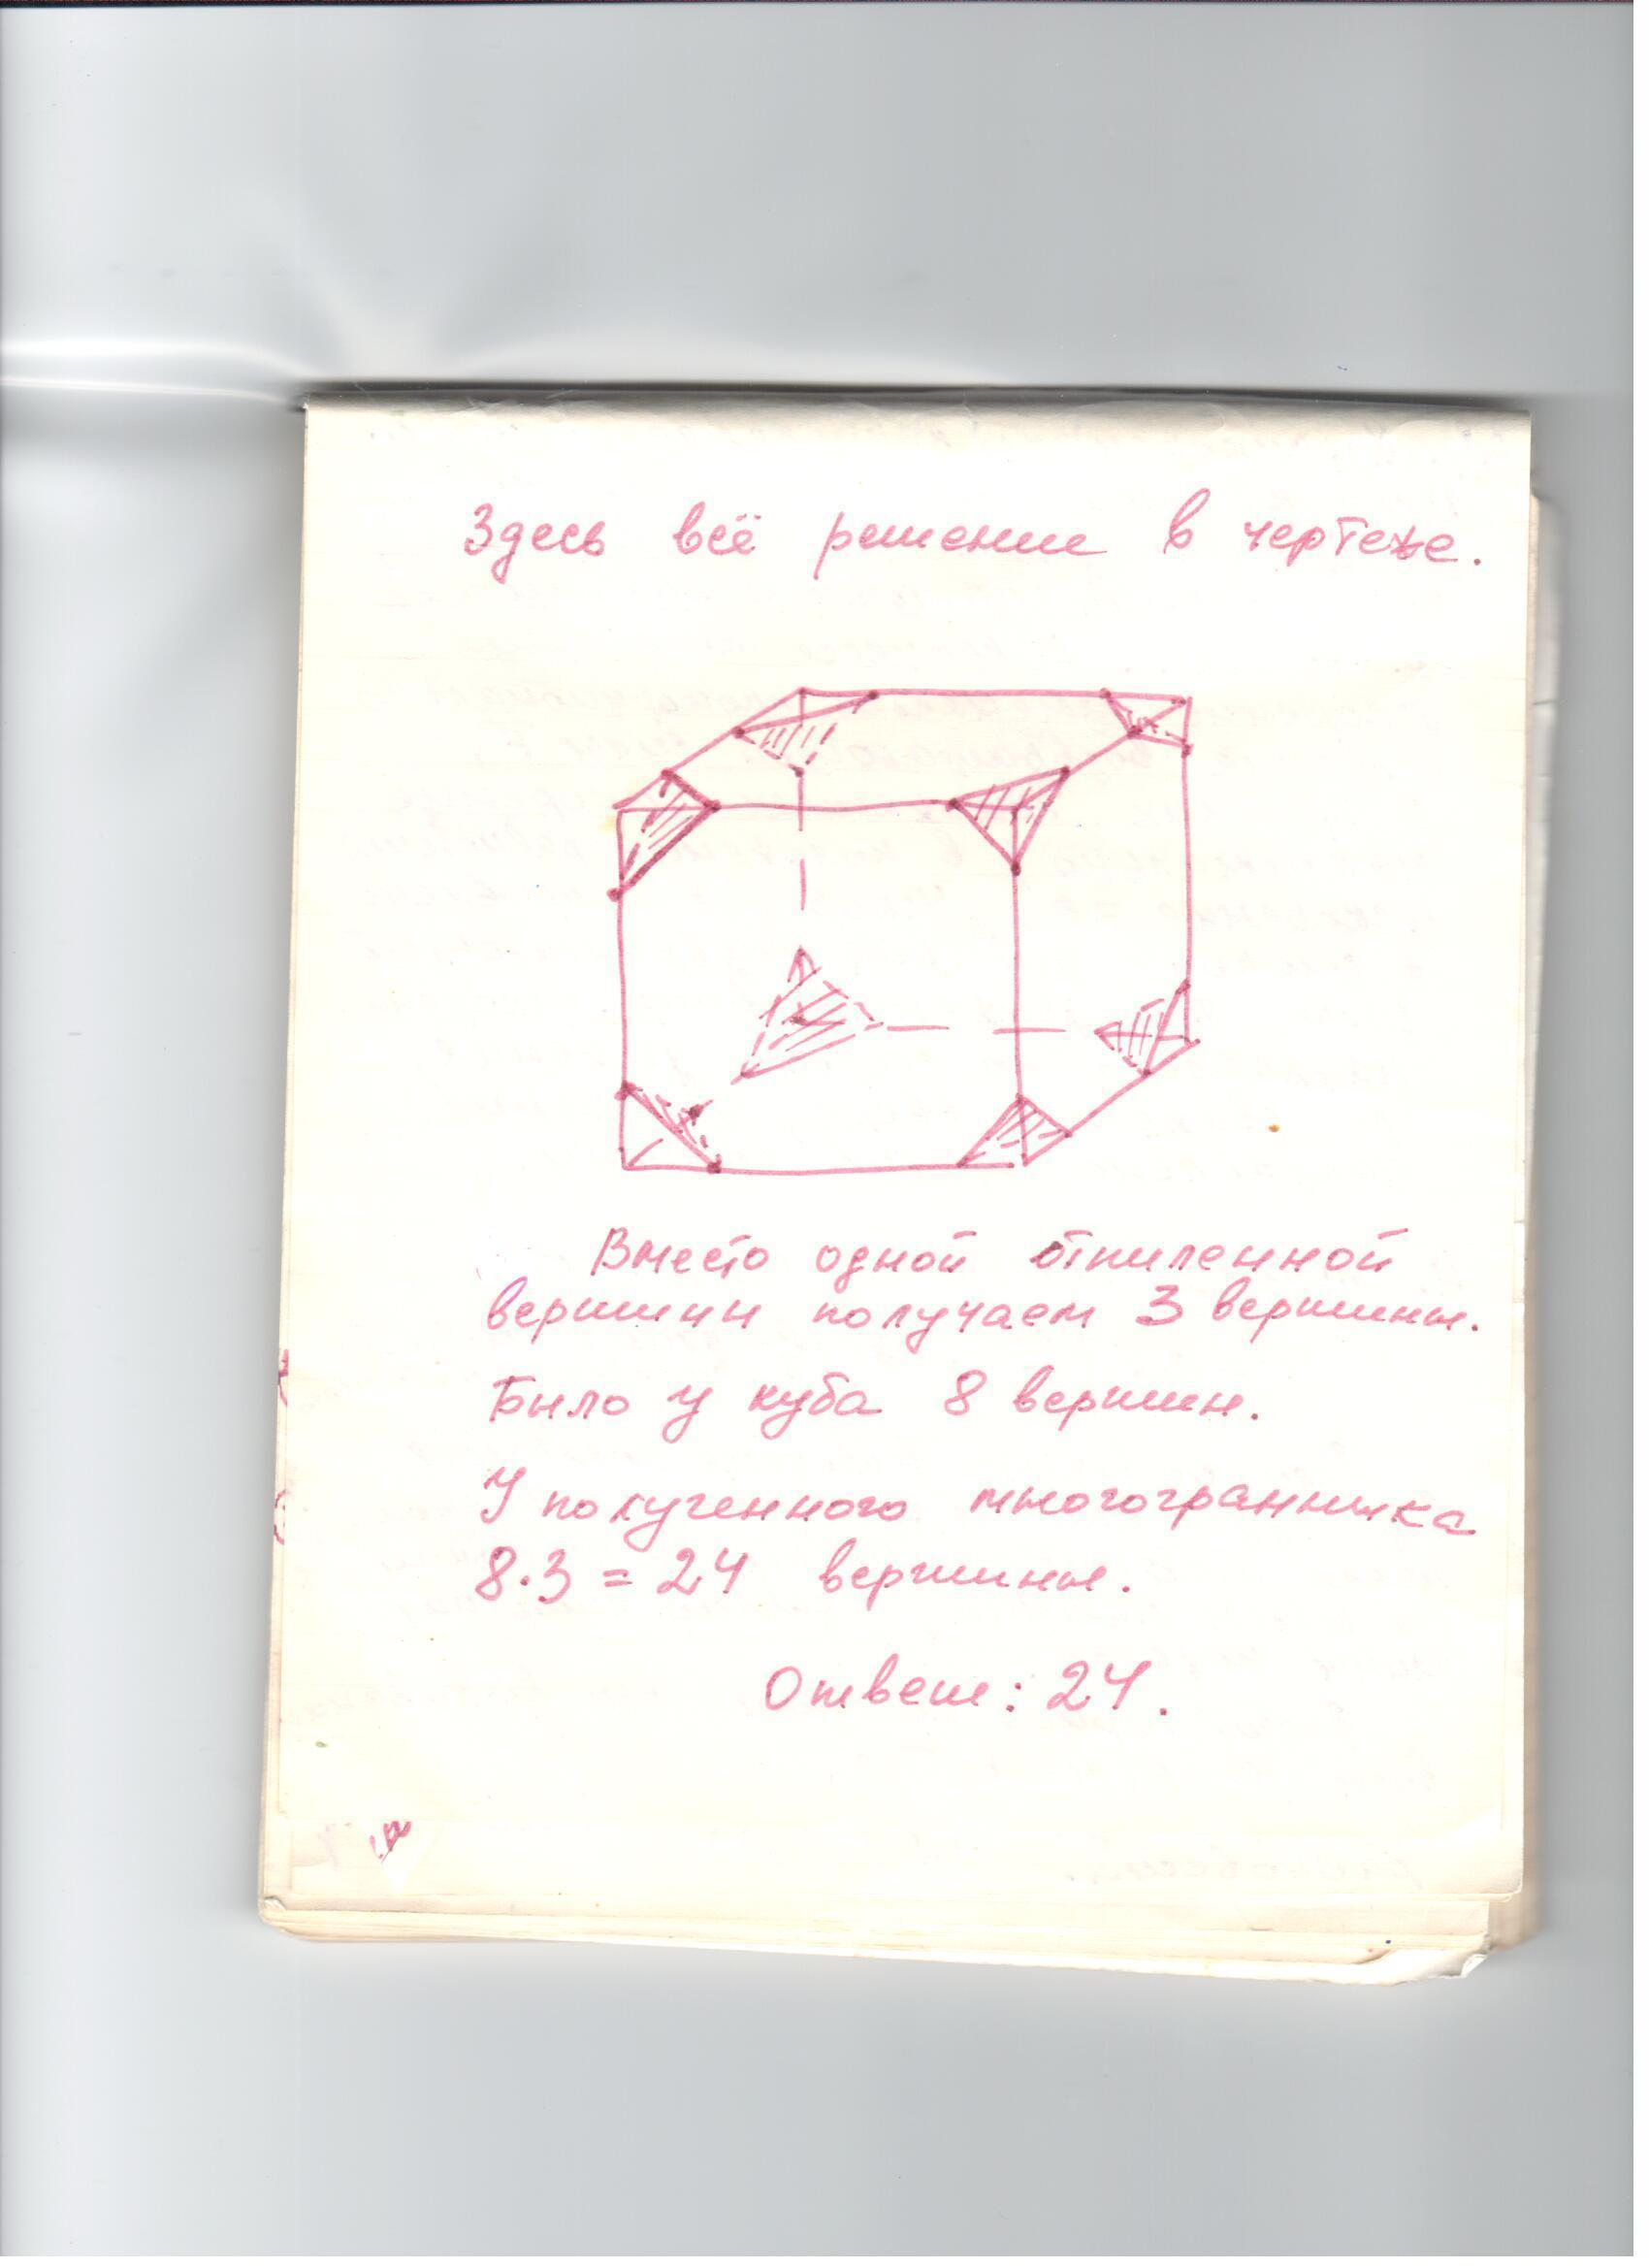 Здесь всё решение в чертеже.
Вместо одной отпиленной
вершины получаем 3 вершины.
Было у куба 8 вершин.
У полученного многогранника
8·3 = 24 вершины.
Ответ: 24.